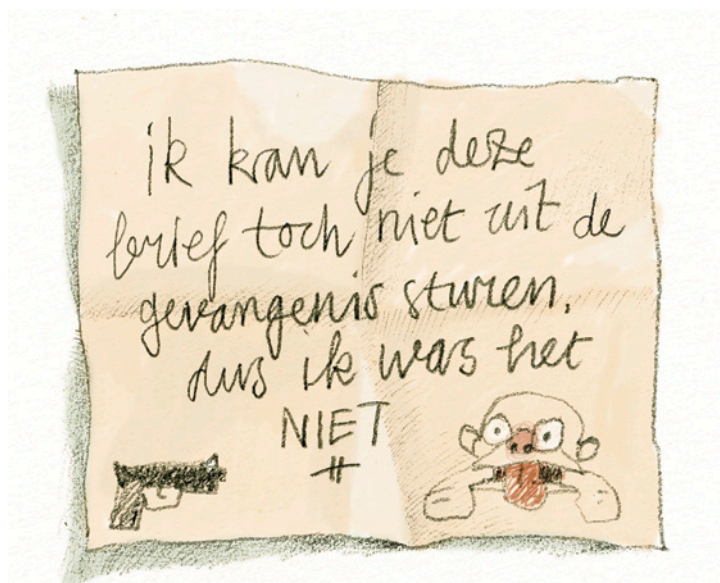 ik kan je deze
brief toch niet uit de
gevangenis sturen,
dus ik was het
NIET